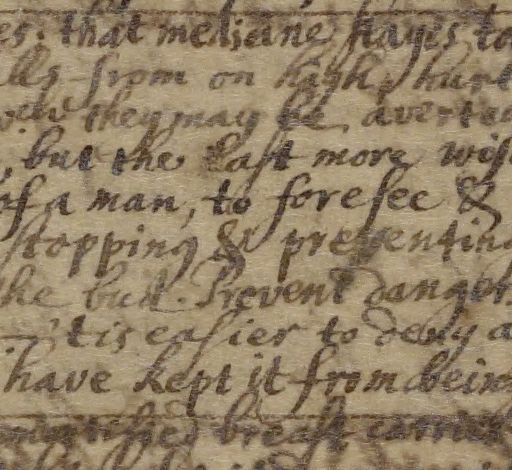 es. that medicine stayes to
lls from on high, hurt
they may be averted
, but the last more wis
of a man, to foresee &
stopping & preventing
he bud. Prevent danger
'tis easier to deny a
have kept it from being
breast carries